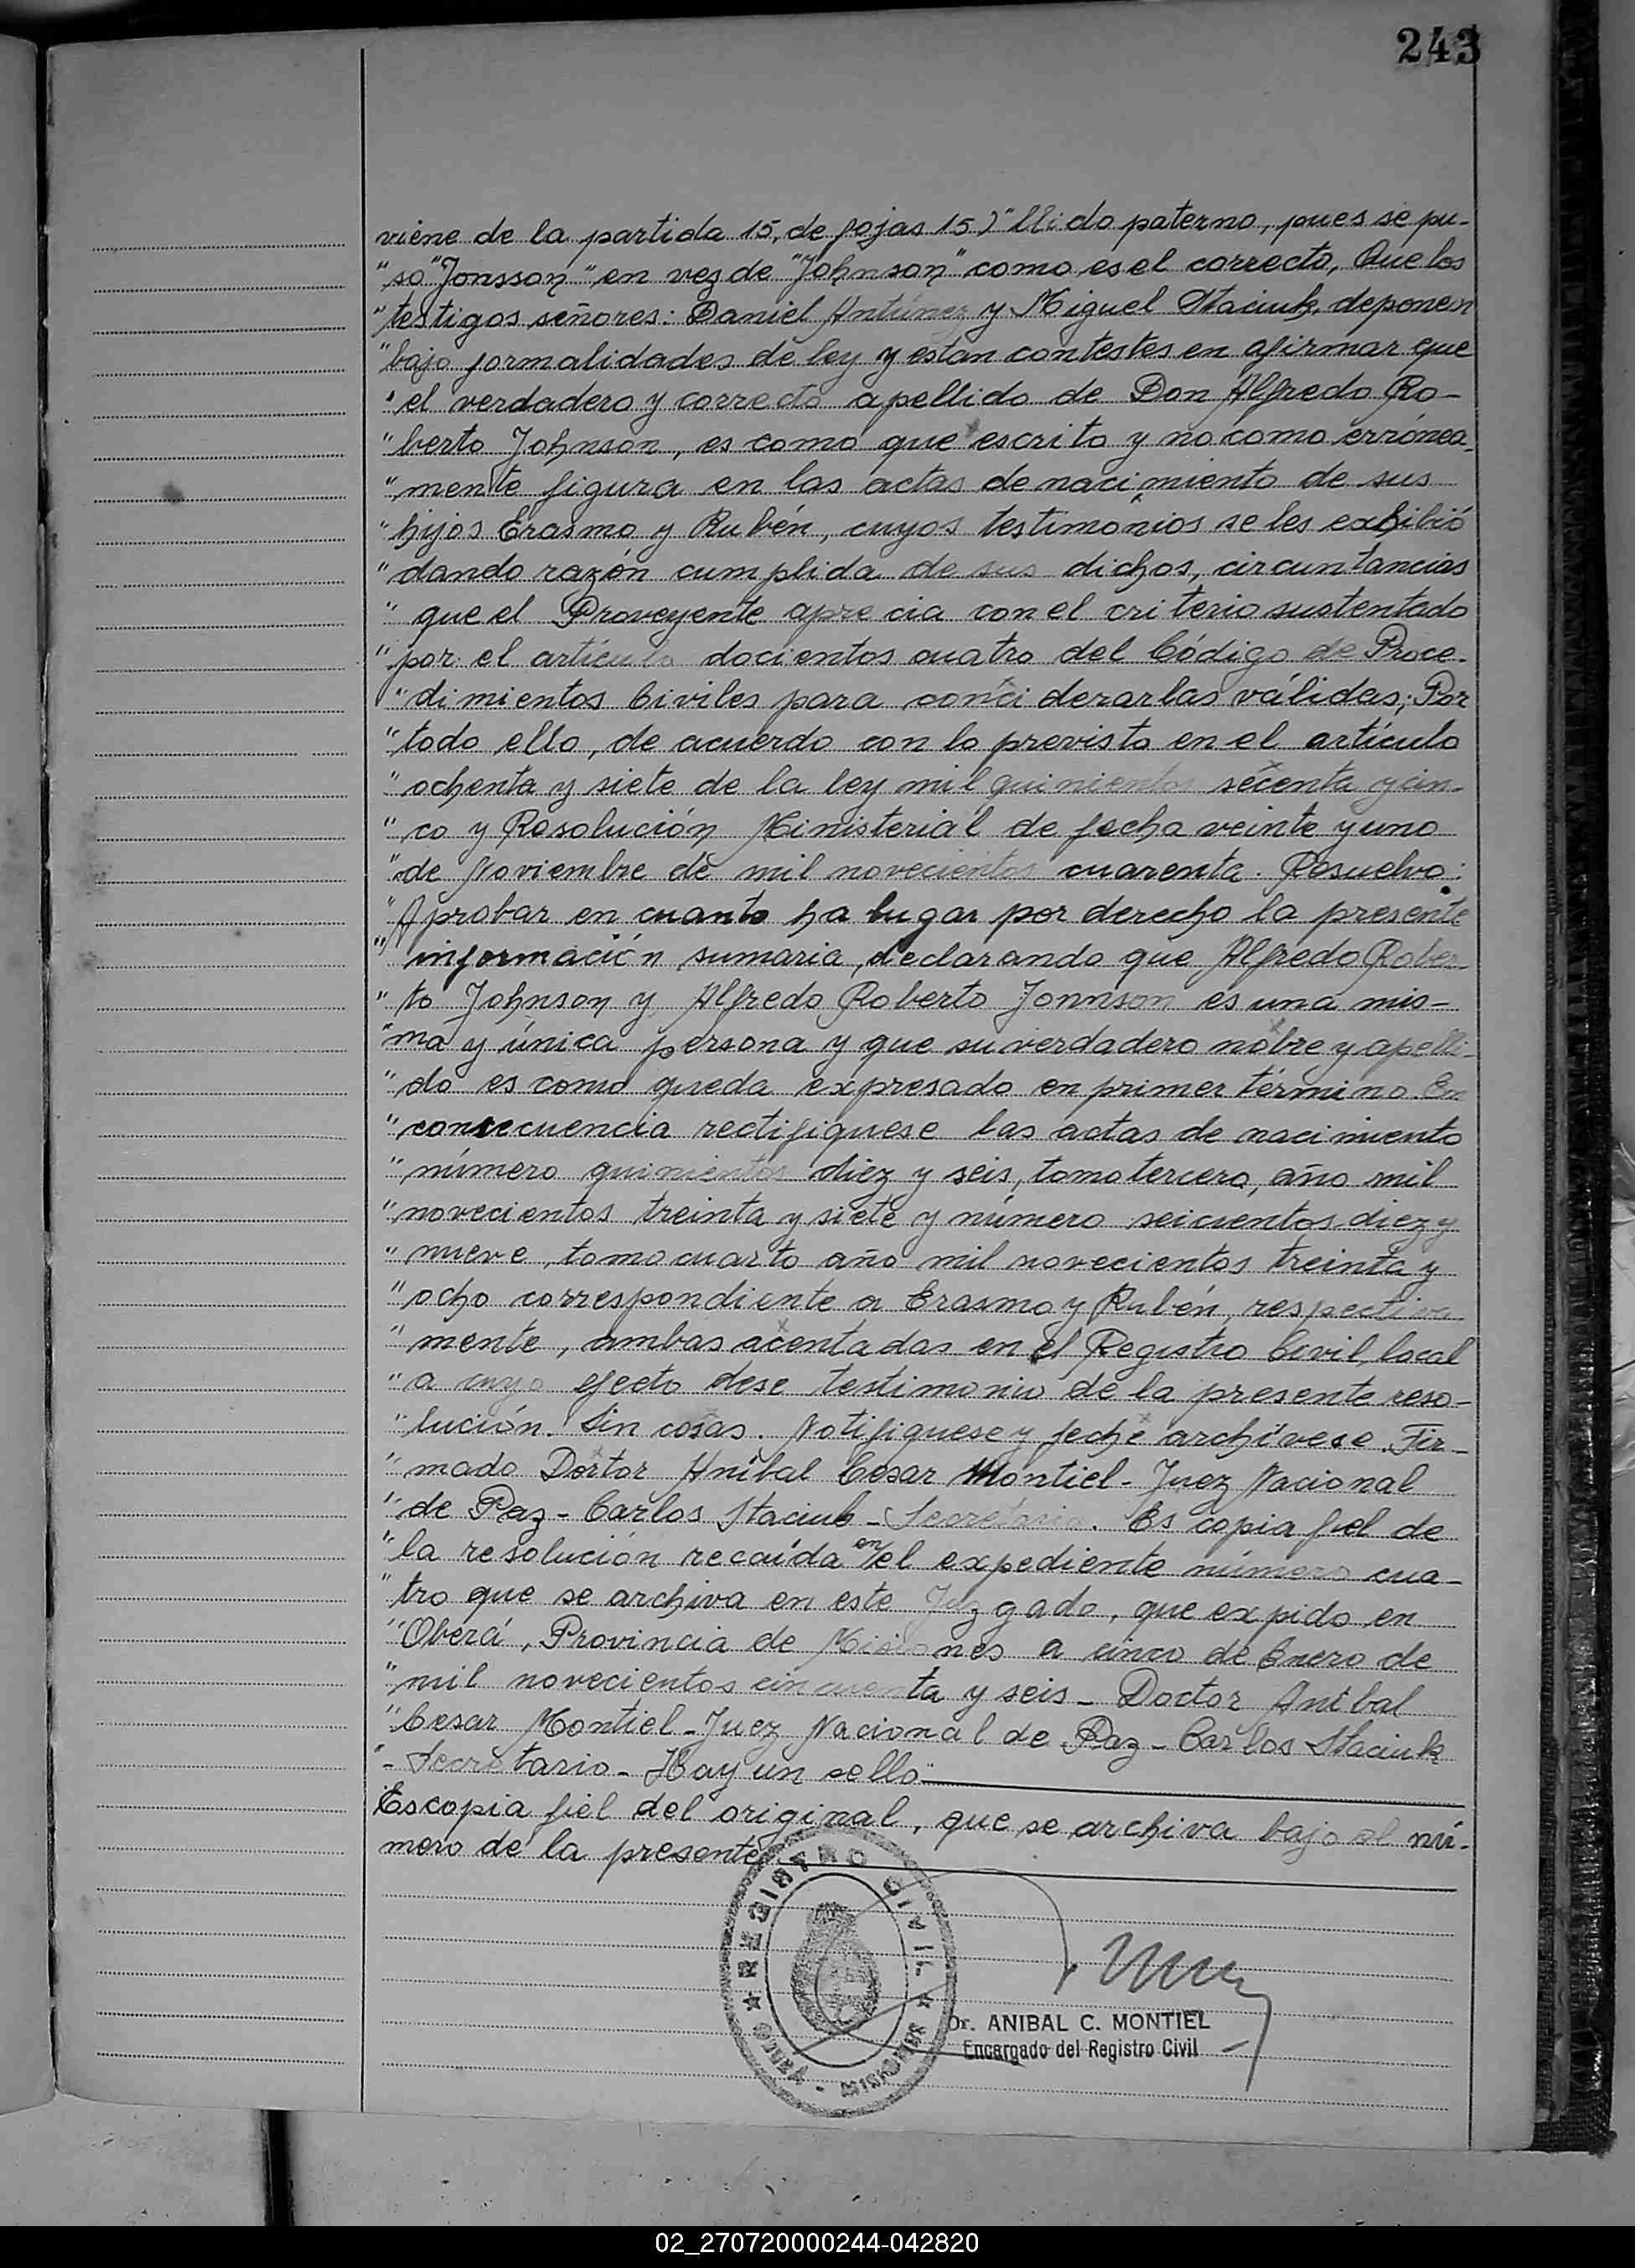 243
viene de la partida 15, de fojas 15.)"llido paterno, pues se pu-
"so "Jonsson" en vez de "Johnson" como es el correcto, Que los
"testigos señores: Daniel Antúnez y Miguel Staciuk, deponen
"bajo formalidades de ley y estan contestes en afirmar que
"el verdadero y correcto apellido de Don Alfredo Ro-
"berto Johnson, es como que escrito y no como errónea
"mente figura en las actas de nacimiento de sus
"hijos Erasmo y Rubén, cuyos testimonios se les exhibió
"dando razón cumplida de sus dichos, circuntancias
"que el Proveyente aprecia con el criterio sustentado
"por el artículo docientos cuatro del Código de Proce-
"dimientos Civiles para conciderarlas válidas; Por
"todo ello, de acuerdo con lo previsto en el artículo
"ochenta y siete de la ley mil quinientos setenta y cin-
"co y Resolución Ministerial de fecha veinte y uno
"de Noviembre de mil novecientos cuarenta. Resuelvo:
"Aprobar en cuanto ha lugar por derecho la presente
"información sumaria, declarando que Alfredo Rober-
"to Johnson y Alfredo Roberto Jonnson es una mis-
"ma y única persona y que su verdadero nobre y apelli-
"do es como queda expresado en primer término. En
"consecuencia rectifiquese las actas de nacimiento
"número quinientos diez y seis, tomo tercero, año mil
"novecientos treinta y siete y número seicientos diez y
"nueve, tomo cuarto año mil novecientos treinta y
"ocho correspondiente a Erasmo y Rubén, respectiva
"mente, ambas acentadas en el Registro Civil, local
"a cuyo efecto dese testimonio de la presente reso-
"lución. Sin cosas. Notifiquese y feche archívese. Fir-
"mado Doctor Anibal Cesar Montiel - Juez Nacional
"de Paz - Carlos Staciuk - Secretario. Es copia fiel de
"la resolución recaída en el expediente número cua-
"tro que se archiva en este Juzgado, que expido en
"Oberá, Provincia de Misiones a cinco de Enero de
"mil novecientos cincuenta y seis - Doctor Anibal
"Cesar Montiel - Juez Nacional de Paz - Carlos Staciuk
"- Secretario - Hay un sello
Es copia fiel del original, que se archiva bajo el nú-
mero de la presente
REGISTRO CIVIL
MISIONES
Dr. ANIBAL C. MONTIEL
Encargado del Registro Civil
02_270720000244-042820